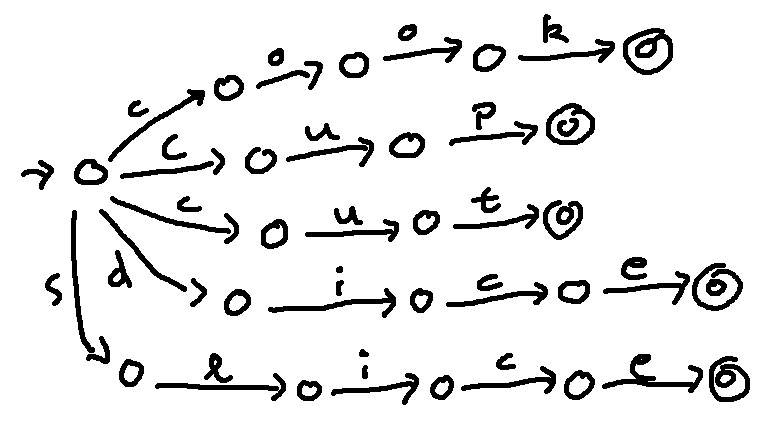 c o o k
c u p
c u t
d i c e
s l i c e